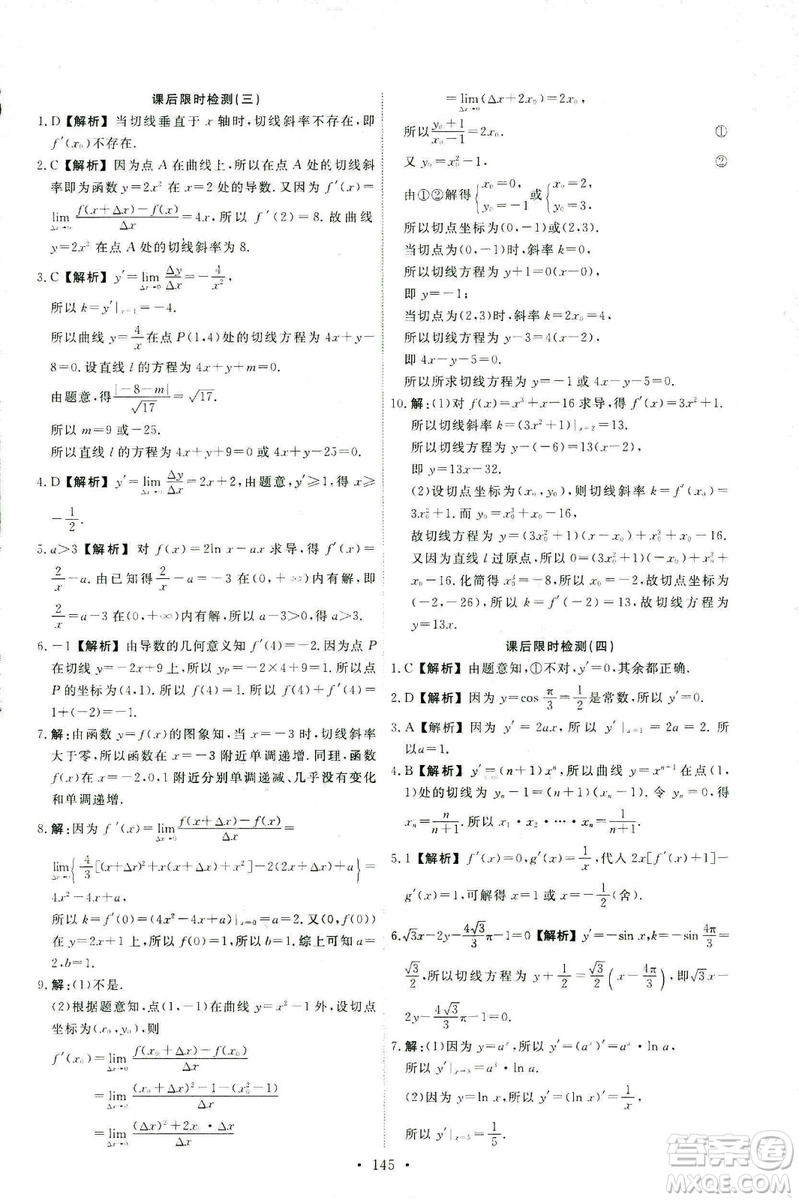 课后限时检测(三)
1. D 【解析】 当切线垂直于 x 轴时,切线斜率不存在,即
f′(x₀)不存在.
2. C 【解析】 因为点 A 在曲线上,所以在点 A 处的切线斜
率即为函数 y=2x² 在 x=2 处的导数. 又因为 f′(x)=
lim_{Δx→0} (f(x+Δx)-f(x))/Δx=4x,所以 f′(2)=8. 故曲线
y=2x² 在点 A 处的切线斜率为 8.
3. C 【解析】 y′=lim_{Δx→0} Δy/Δx=-4/x²,
所以 k=y′|ₓ₌₁=-4.
所以曲线 y=4/x 在点 P(1,4)处的切线方程为 4x+y-
8=0. 设直线 l 的方程为 4x+y+m=0.
由题意,得 |-8-m|/√17=√17.
所以 m=9 或 -25.
所以直线 l 的方程为 4x+y+9=0 或 4x+y-25=0.
4. D 【解析】 y′=lim_{Δx→0} Δy/Δx=2x+2,由题意,y′≥1,得 x≥
-1/2.
5. a>3 【解析】 对 f(x)=2ln x-ax 求导,得 f′(x)=
2/x-a. 由已知得 2/x-a=-3 在(0,+∞)内有解,即
2/x=a-3 在(0,+∞)内有解,所以 a-3>0,所以 a>3.
6. -1 【解析】 由导数的几何意义知 f′(4)=-2. 因为点 P
在切线 y=-2x+9 上,所以 y_P=-2×4+9=1. 所以点
P 的坐标为(4,1). 所以 f(4)=1. 所以 f(4)+f′(4)=
1+(-2)=-1.
7. 解:由函数 y=f(x)的图象知,在 x=-3 处,切线斜率
大于零,所以函数在 x=-3 附近单调递增. 同理,函数
f(x)在 x=-2,0,1 附近分别单调递增、几乎没有变化
和单调递增.
8. 解:因为 f′(x)=lim_{Δx→0} (f(x+Δx)-f(x))/Δx=
lim_{Δx→0}{4/3[(x+Δx)²+x(x+Δx)+x²]-2(2x+Δx)+a}=
4x²-4x+a,
所以 k=f′(0)=(4x²-4x+a)|ₓ₌₀=2. 又(0,f(0))
在切线上,所以 f(0)=b=1. 综上可知 a=
2,b=1.
9. 解:(1)不是.
(2)根据题意知,点(1,-1)不在曲线 y=x²-1 上,设切点
坐标为(x₀,y₀),则
f′(x₀)=lim_{Δx→0} (f(x₀+Δx)-f(x₀))/Δx
=lim_{Δx→0} ((x₀+Δx)²-1-x₀²+1)/Δx
=lim_{Δx→0} ((Δx)²+2x₀·Δx)/Δx
=lim_{Δx→0}(Δx+2x₀)=2x₀.
所以 (y₀+1)/(x₀-1)=2x₀. ①
又 y₀=x₀²-1. ②
由①②解得{x₀=0, y₀=-1 或{x₀=2, y₀=3.
所以切点坐标为(0,-1)或(2,3).
当切点为(0,-1)时,斜率 k=0,
所以切线方程为 y+1=0(x-0),
即 y=-1;
当切点为(2,3)时,斜率 k=4,
所以切线方程为 y-3=4(x-2),
即 4x-y-5=0.
所以所求切线方程为 y=-1 或 4x-y-5=0.
10. 解:(1)对 f(x)=x³+x-16 求导,得 f′(x)=3x²+1.
所以切线斜率 k=(3x²+1)|ₓ₌₂=13.
所以切线方程为 y-(-6)=13(x-2),
即 y=13x-32.
(2)设切点坐标为(x₀,y₀),则切线斜率 k=f′(x₀)=
3x₀²+1. 而 y₀=x₀³+x₀-16,
故切线方程为 y-(x₀³+x₀-16)=(3x₀²+1)(x-x₀).
又因为直线 l 过原点,所以(0,0)适合切线方程,代入
化简得 x₀³=-8,所以 x₀=-2,故切点坐标为
(-2,-26),所以切线方程为 y-(-26)=13(x+2),
即 y=13x.
课后限时检测(四)
1. C 【解析】 由题意知,①不对,②③④正确.
2. D 【解析】 因为 y=cos π/3=1/2是常数,所以 y′=0.
3. A 【解析】 因为 y′=2ax,所以 y′|ₓ₌₁=2a=2. 所
以 a=1.
4. B 【解析】 y′=(n+1)xⁿ,曲线 y=xⁿ⁺¹ 在点(1,
1)处的切线为 y-1=(n+1)(x-1). 令 y=0,得
xₙ=n/(n+1). 所以 x₁·x₂·…·xₙ=1/(n+1).
5. 1 【解析】 f′(x)=2x,g′(x)=1/x,代入 2x[f′(x)+1]-
g′(x)=1,可解得 x=1 或 x=-1/2(舍).
6. √3x-2y-4√3/3π-1=0 【解析】 y′=-sin x,k=-sin 4π/3
=√3/2,所以切线方程为 y+1/2=√3/2(x-4π/3),即√3x-
2y-4√3/3π-1=0.
7. 解:(1)因为 y=aˣ,所以 y′=aˣ·ln a,
所以 y′|ₓ₌₃=a³·ln a.
(2)因为 y=ln x,所以 y′=1/x,
所以 y′|ₓ₌₅=1/5.
• 145 •
答案圈
MXQE.COM